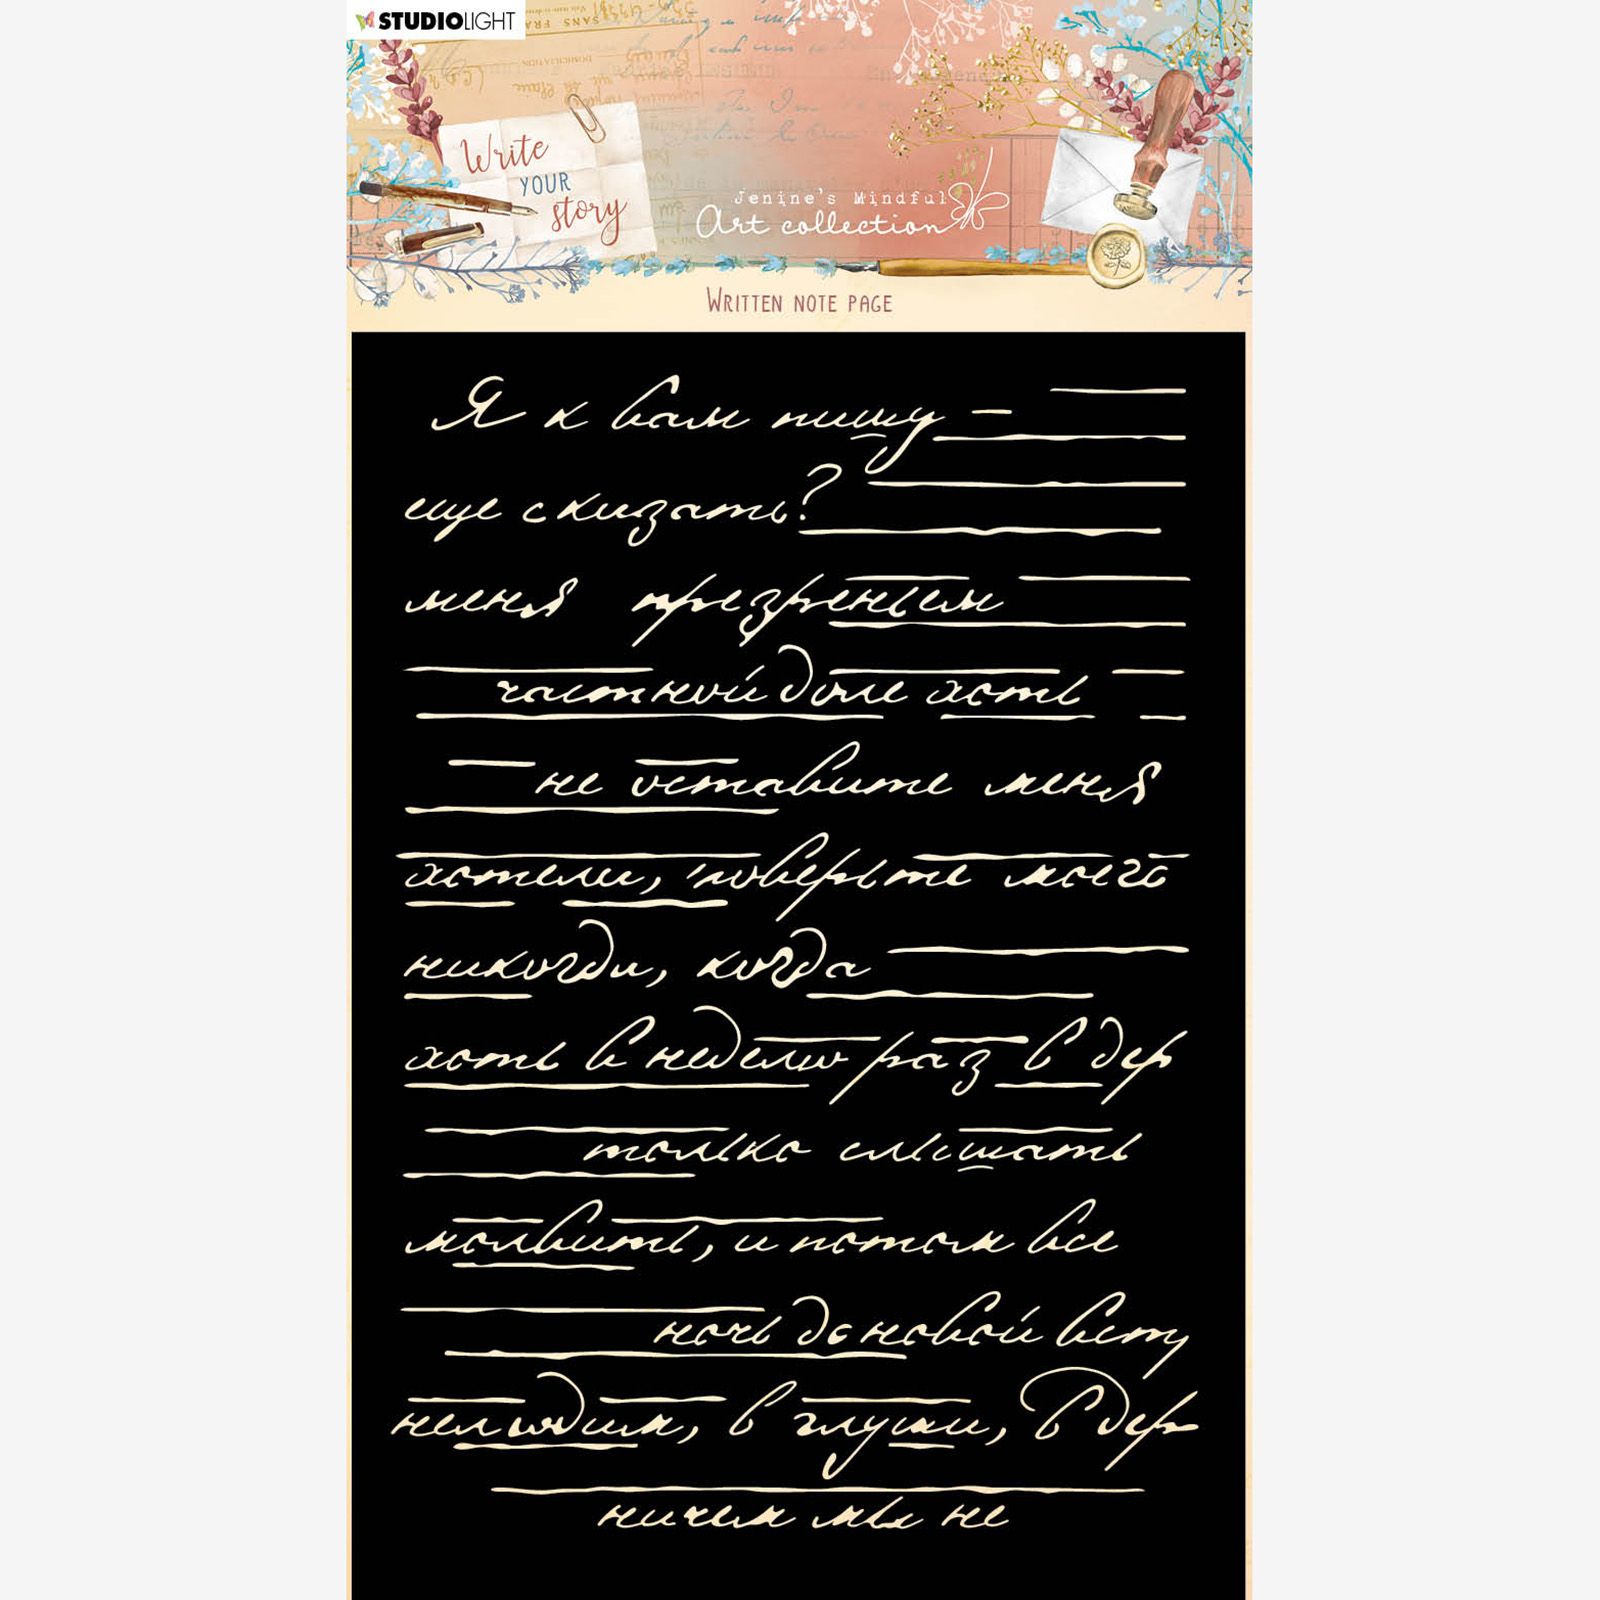 STUDIOLIGHT
Write
YOUR
story
Jenine's Mindful
Art collection
WRITTEN NOTE PAGE
Я к вам пишу –
еще сказать?
меня презреньем
частной доле хоть
не оставите меня
хотели, поверьте моего
никогди, когда
хоть в неделю раз в дер
только слышать
молвить, и потом все
ночь до новой вст
нелюдим, в глуши, в дер
ничем мы не